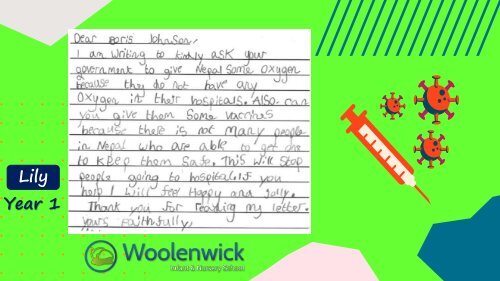 Dear Boris Johnson,
I am writing to kindly ask your
government to give Nepal some oxygen
because they do not have any
oxygen in their hospitals. Also can
you give them some
because there is not many people
in Nepal who are able to get one
to keep them safe. This will stop
people going to hospital. If you
help I will feel happy and jolly.
Thank you for reading my letter.
yours faithfully,
Lily
Year 1
Woolenwick
Infant & Nursery School